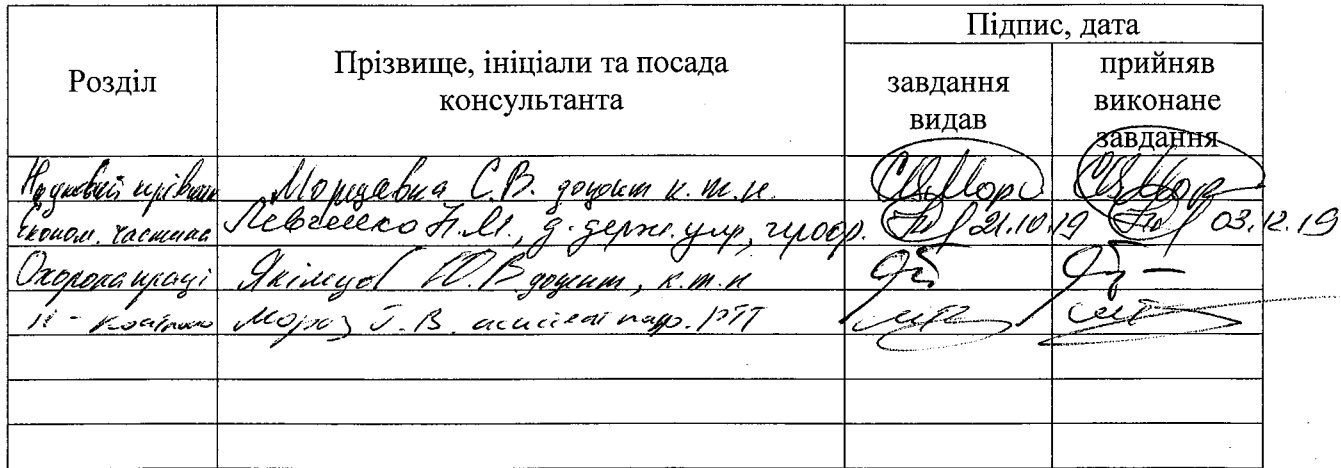 Розділ
Прізвище, ініціали та посада
консультанта
Підпис, дата
завдання
видав
прийняв
виконане
завдання
Науковий керівник С.В. доцент к.т.н.
Економ. частина Левченко Н.М., д. держ. упр, проф. 21.10.19 03.12.19
Охорона праці Якімцов Ю.В доцент, к.т.н
Н-контроль Мороз Г.В. асистент каф.